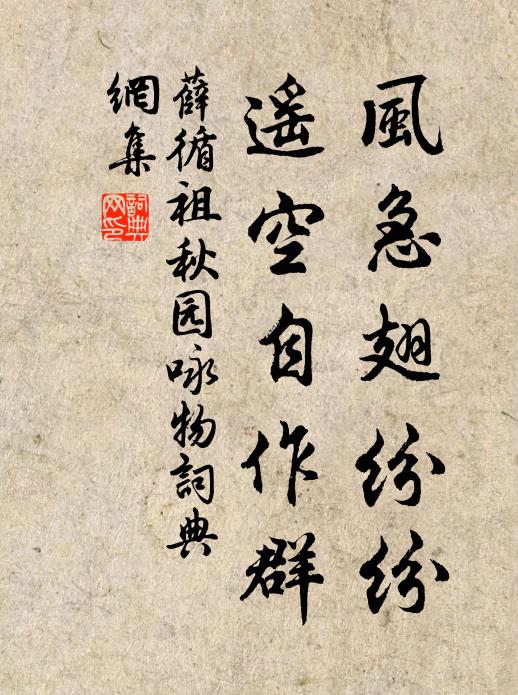 風急翅紛紛
遥空自作群
薛循祖秋园咏物詞典
網集
詞典
网印